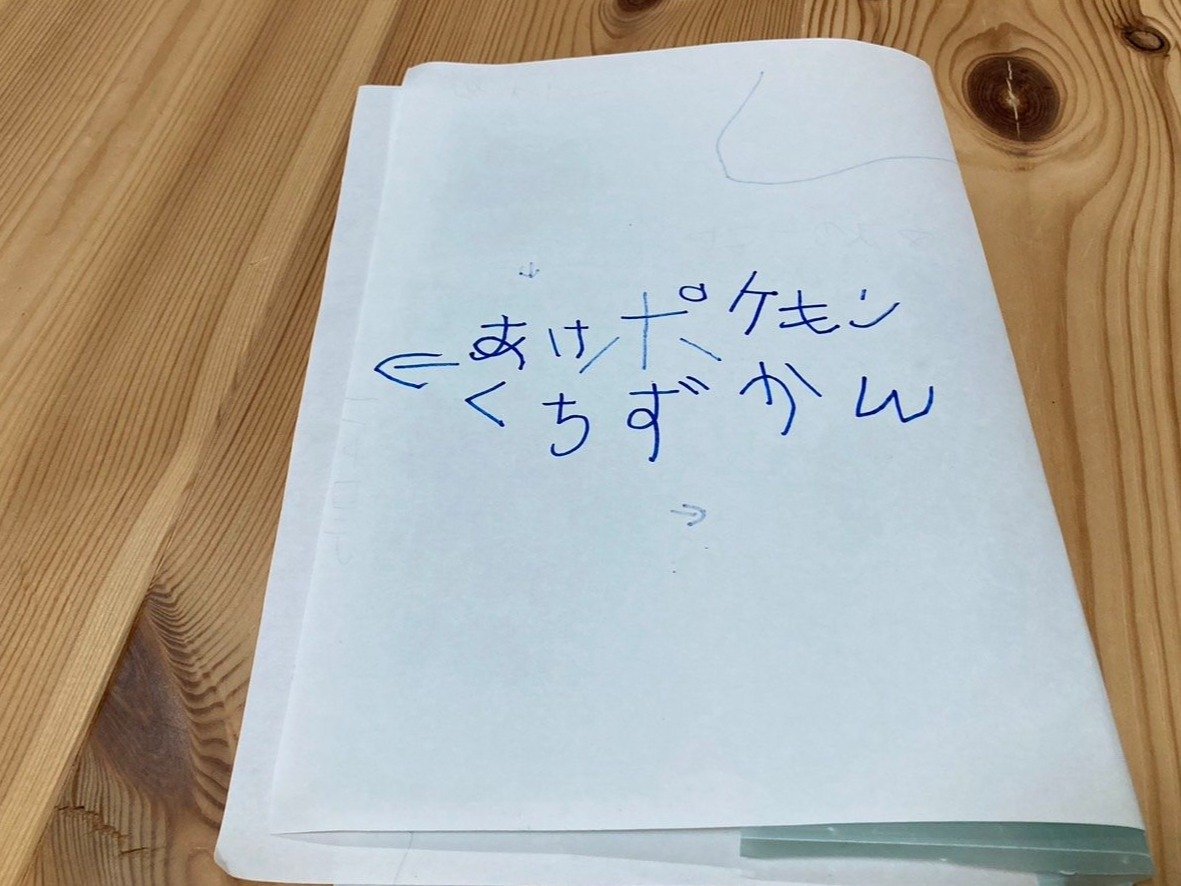 ←あけポケモン
くちずかん
↓
→